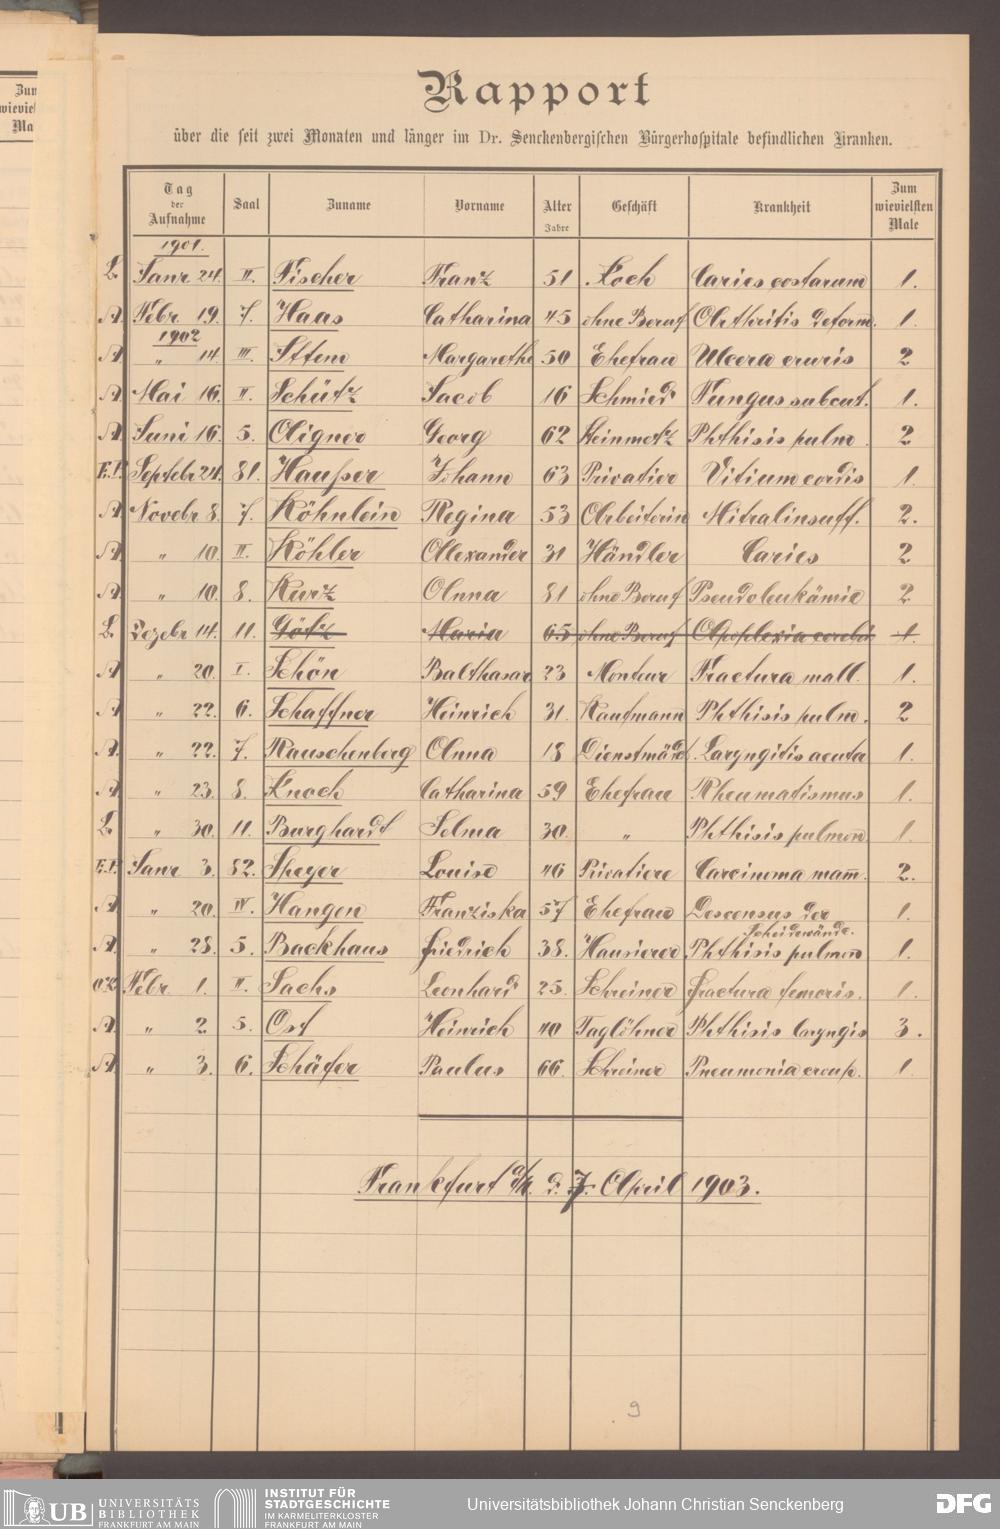 Zum
wieviel
Ma
Rapport
über die seit zwei Monaten und länger im Dr. Senckenbergischen Bürgerhospitale befindlichen Kranken.
Tag der Aufnahme Saal Zuname Vorname Alter Jahre Geschäft Krankheit Zum wievielsten Male
1901.
L. Janr 24. II. Fischer Franz 51 Koch Caries costarum 1.
A. Febr. 19. 7. Haas Catharina 45 ohne Beruf Arthritis deform. 1.
1902
A. " 14. III. Margarethe 50 Ehefrau Ulcera cruris 2
A. Mai 16. II. Schütz Jacob 16 Schmied Fungus subcut. 1.
A. Juni 16. 5. Aigner Georg 62 Steinmetz Phthisis pulm. 2
E.P. Septebr 24. 81. Hausser Johann 63 Privatier Vitium cordis 1.
A. Novebr 8. 7. Köhnlein Regina 53 Arbeiterin Mitralinsuff. 2.
A. " 10. II. Köhler Allexander 31 Händler Caries 2
A. " 10. 8. Kurz Anna 81 ohne Beruf Pseudoleukämie 2
L. Dezebr 14. 11. Götz Maria 65 ohne Beruf Apoplexia cerebri 1.
A. " 20. I. Schön Balthasar 23 Monteur Fractura mall. 1.
A. " 22. 6. Schaffner Heinrich 31. Kaufmann Phthisis pulm. 2
A. " 22. 7. Rauschenberg Anna 18 Dienstmäd. Laryngitis acuta 1.
A. " 23. 8. Knoch Catharina 59 Ehefrau Rheumatismus 1.
L. " 30. 11. Burghardt Selma 30. " Phthisis pulmon 1.
E.P. Janr 3. 82. Speyer Louise 46 Privatiere Carcinoma mam̅. 2.
A. " 20. IV. Hangen Franziska 57 Ehefrau Descensus der 1.
Scheidewände.
A. " 28. 5. Backhaus Friedrich 38. Hausierer Phthisis pulmon 1.
Febr. 1. II. Sachs Leonhard 25. Schreiner Fractura femoris. 1.
A. " 2. 5. Ost Heinrich 40 Taglöhner Phthisis laryngis 3.
A. " 3. 6. Schäfer Paulus 66. Schreiner Pneumonia croup. 1.
Frankfurt a/M. d. 7. April 1903.
9
UB UNIVERSITÄTS
BIBLIOTHEK
FRANKFURT AM MAIN
INSTITUT FÜR
STADTGESCHICHTE
IM KARMELITERKLOSTER
FRANKFURT AM MAIN
Universitätsbibliothek Johann Christian Senckenberg
DFG